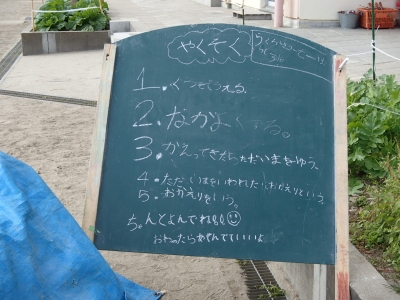 やくそく
1.くつをそろえる。
2.なかよくする。
3.かえってきたらただいまをゆう。
4.ただいまをいわれたらおかえりという。
5.おかえりをいう。
ちゃんとよんでね!!
おわったらあそんでいいよ